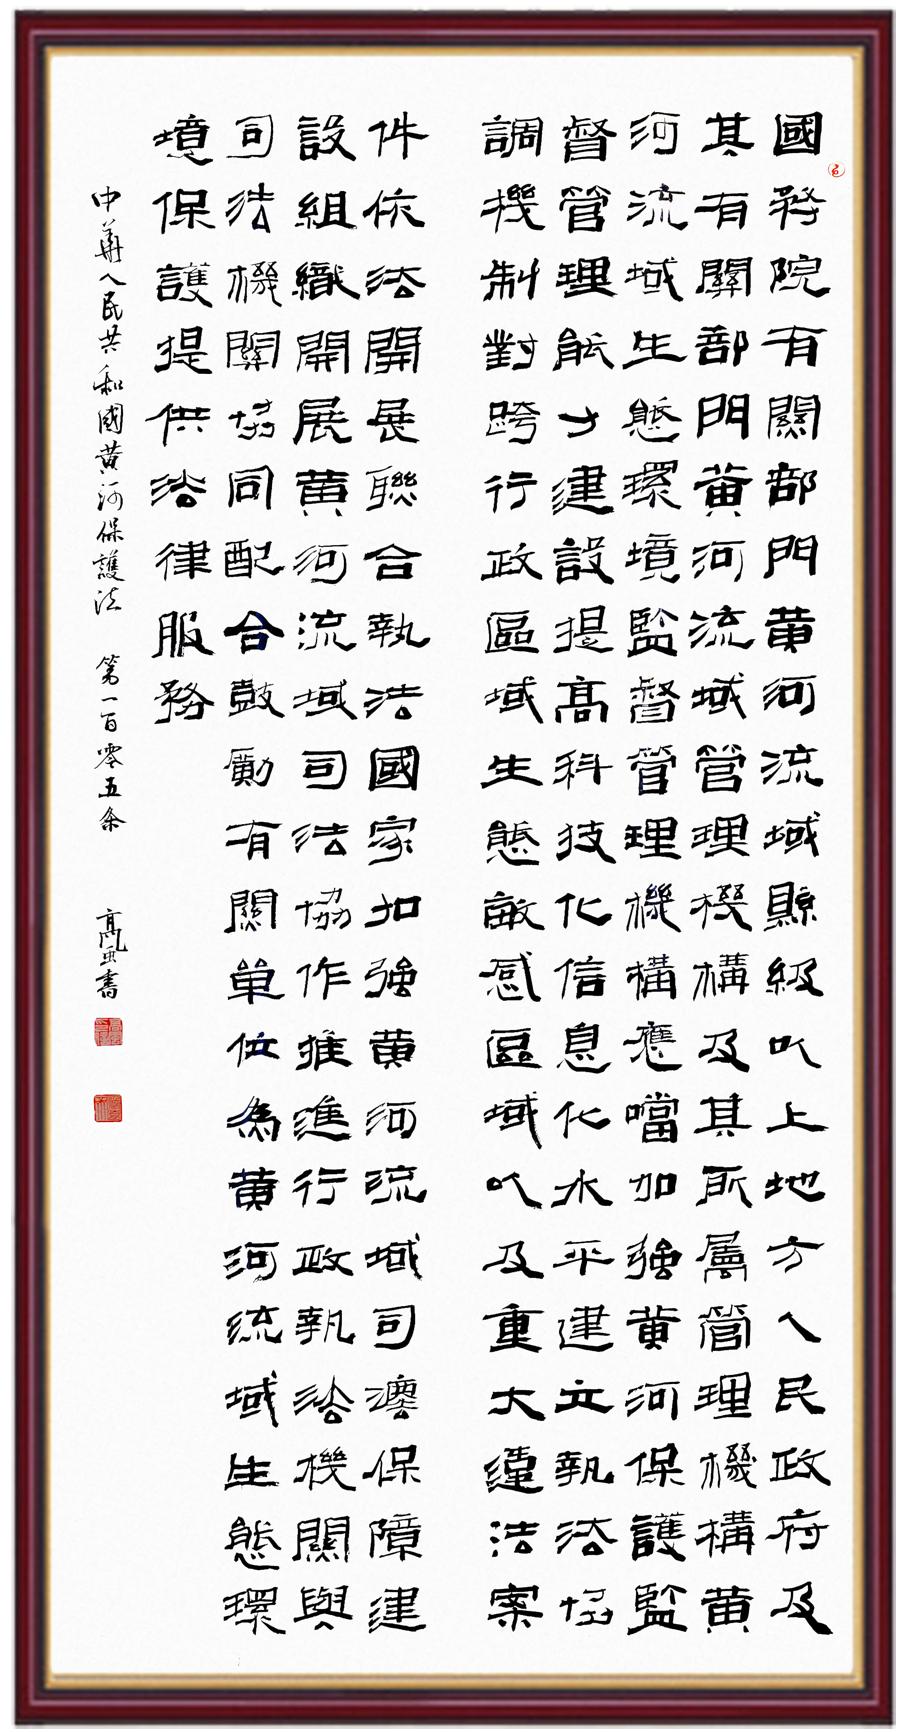 國務院有關部門黄河流域縣級以上地方人民政府及
其有關部門黄河流域管理機構及其所屬管理機構黄
河流域生態環境監督管理機構應噹加強黄河保護監
督管理能力建設提高科技化信息化水平建立執法協
調機制對跨行政區域生態敏感區域以及重大違法案
件依法開展聯合執法國家加強黄河流域司灋保障建
設組織開展黄河流域司法協作推進行政執法機關與
司法機關協同配合鼓勵有關單位為黄河流域生態環
境保護提供法律服務
中華人民共和國黄河保護法 第一百零五条 書